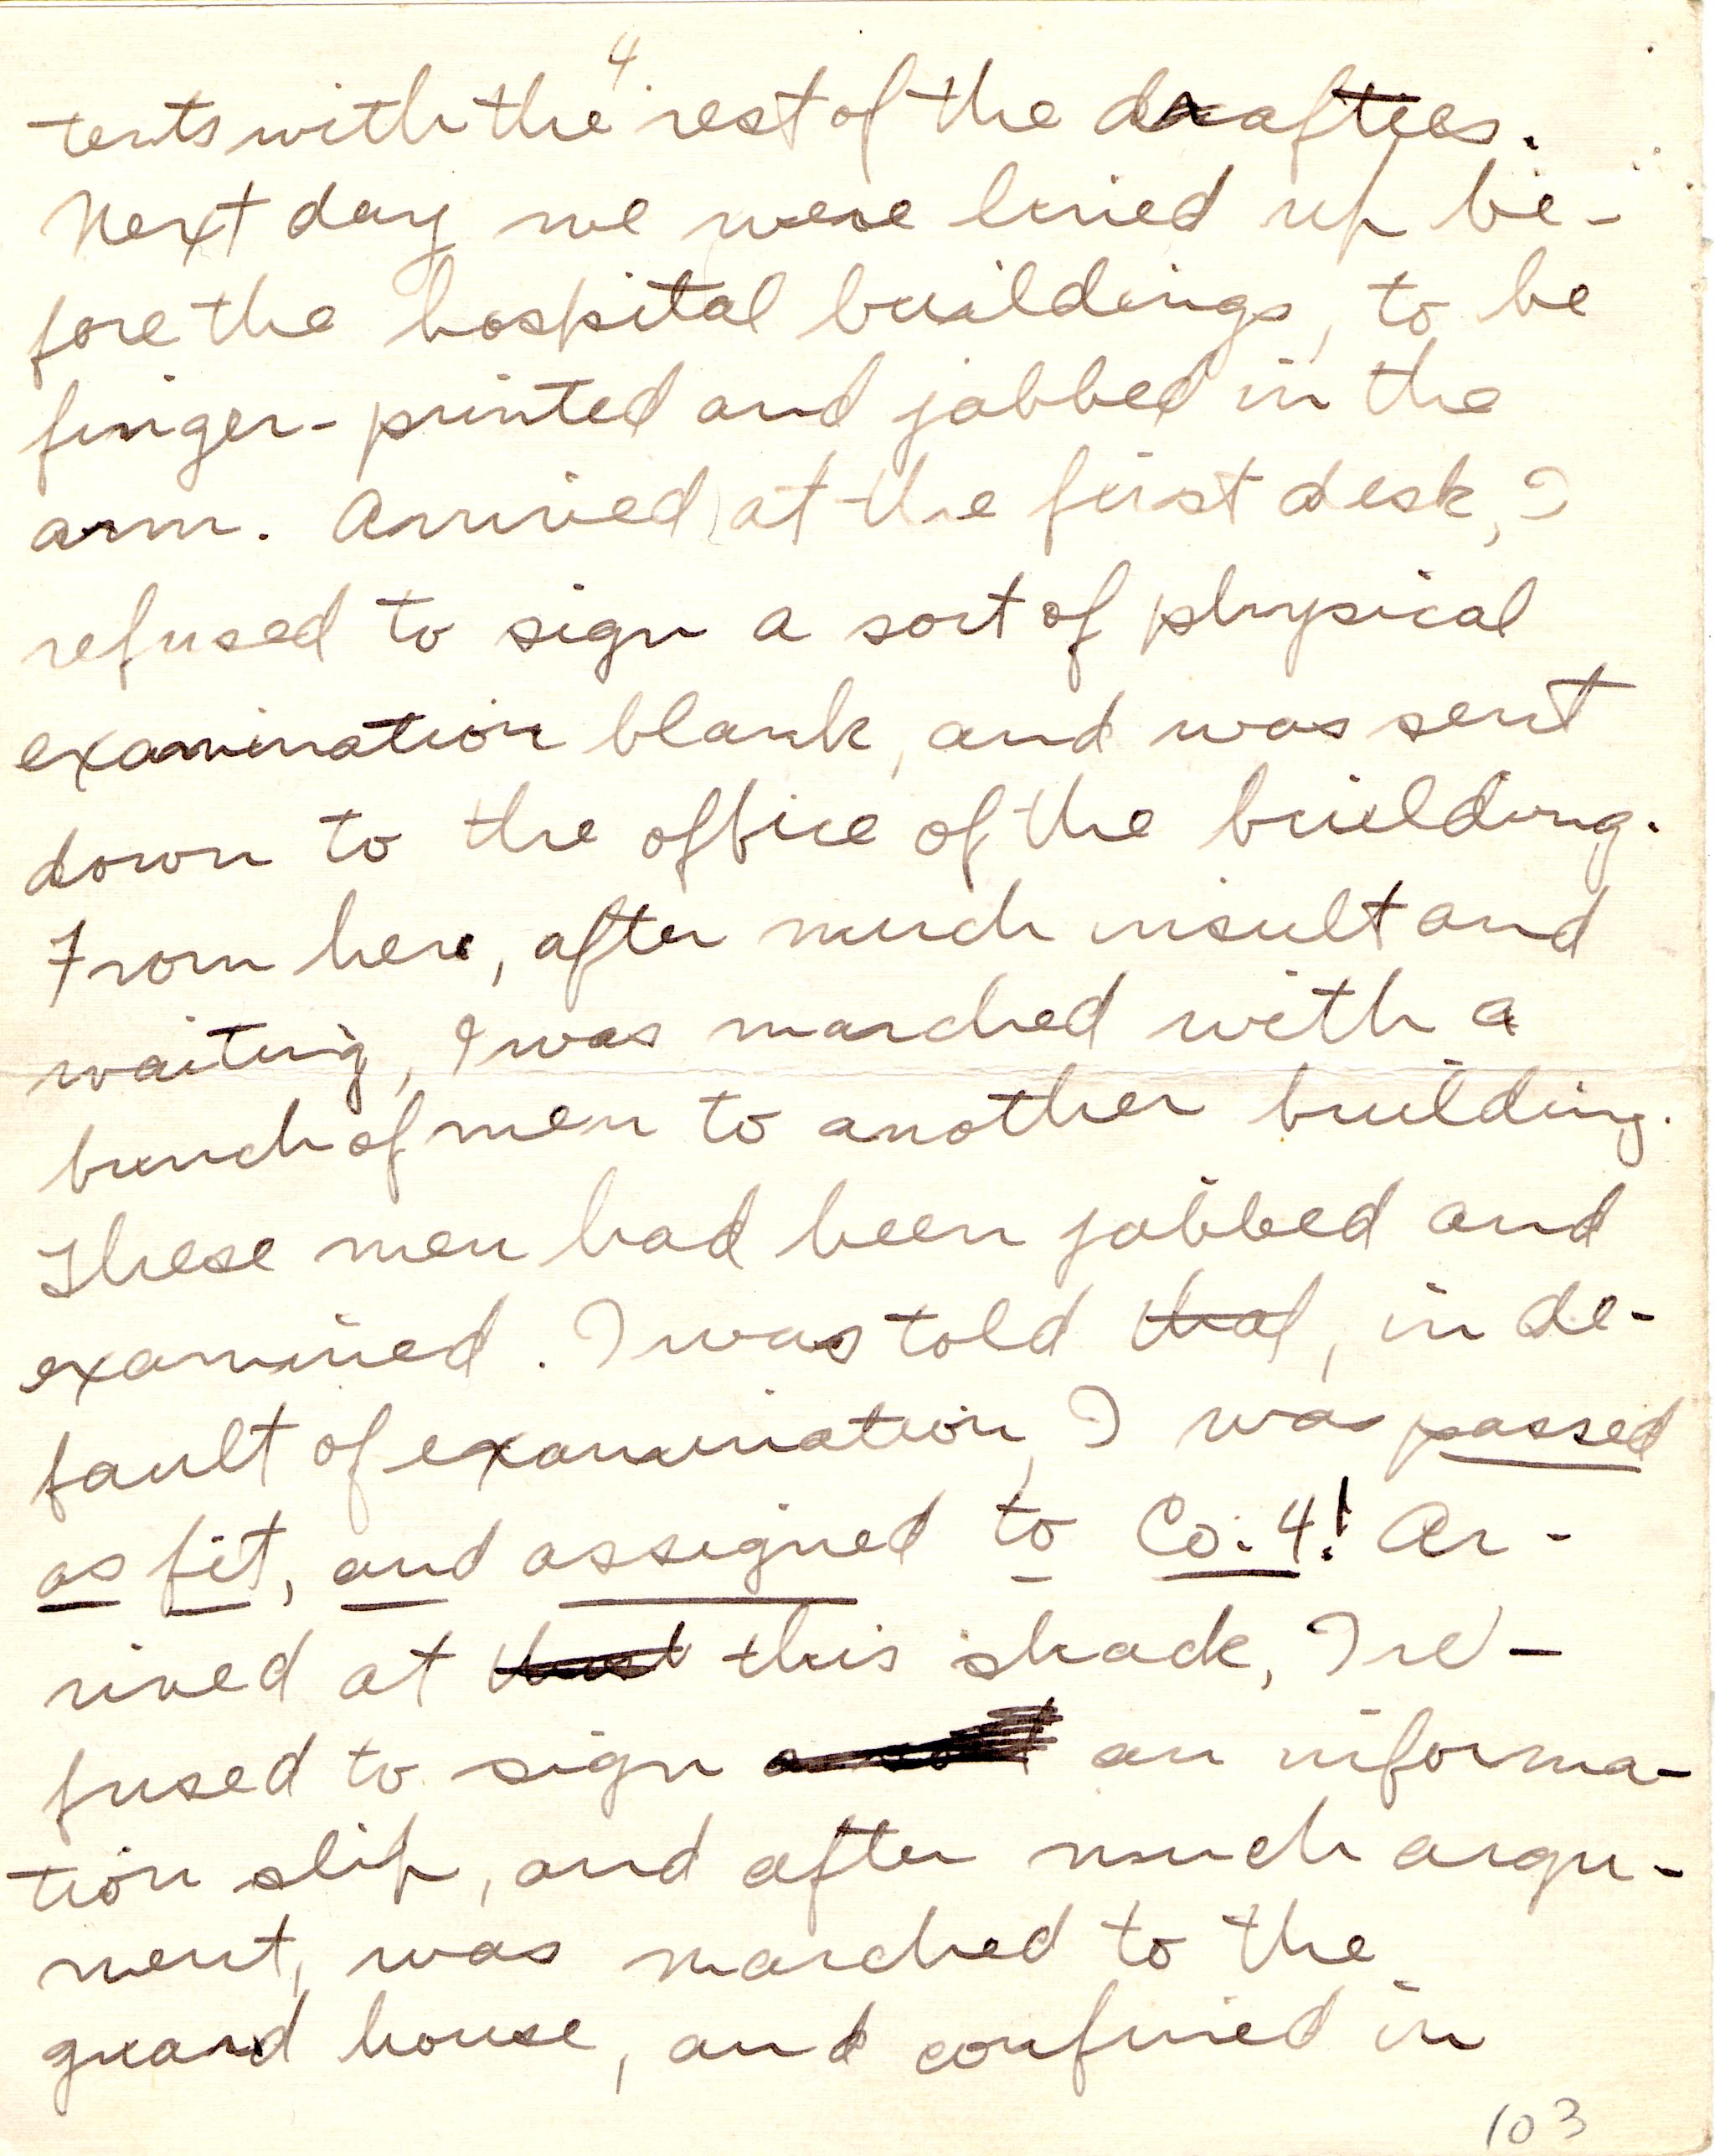 4
tents with the rest of the draftees.
Next day we were lined up be-
fore the hospital buildings, to be
finger-printed and jabbed in the
arm. Arrived at the first desk, I
refused to sign a sort of physical
examination blank, and was sent
down to the office of the building.
From here, after much insult and
waiting, I was marched with a
bunch of men to another building.
These men had been jabbed and
examined. I was told that, in de-
fault of examination, I was passed
as fit, and assigned to Co. 4! Ar-
rived at this shack, I re-
fused to sign an informa-
tion slip, and after much argu-
ment, was marched to the
guard house, and confined in
103